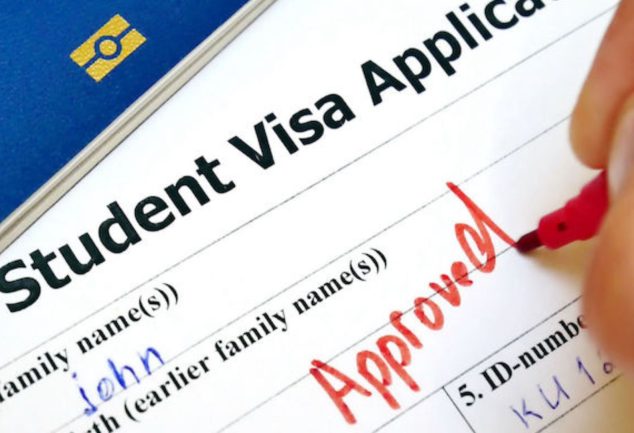 Student Visa Applica
family name(s))
john
th (earlier family name(s))
Approved
5. ID-numbe
KU 18